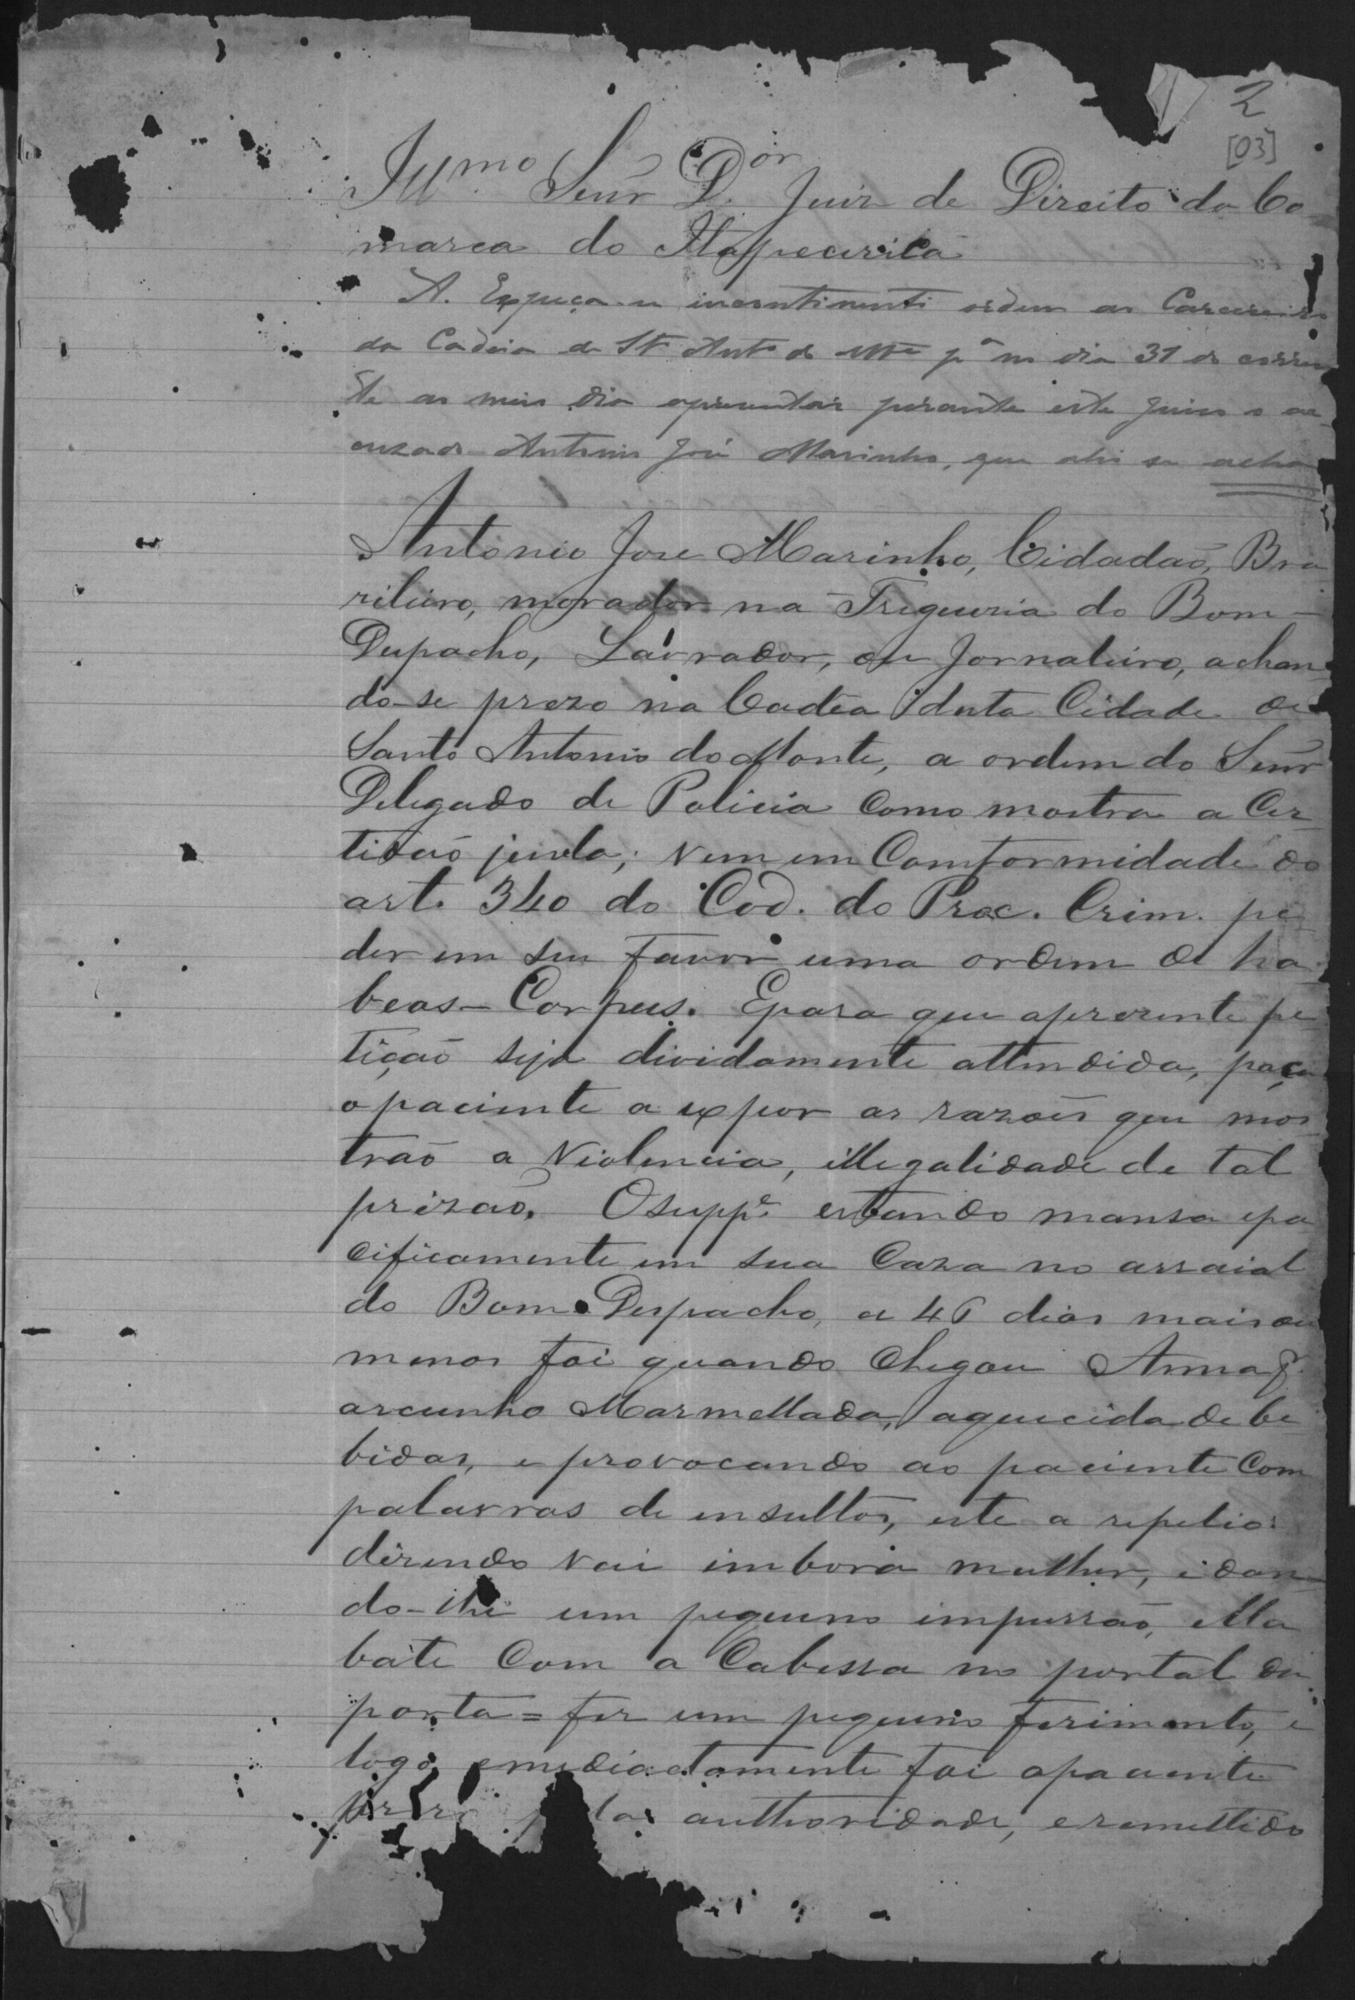 2
[03]
Illmo Senr Dor Juiz de Direito da Co
marca do Itapecirica
A. Expeça-se incontinenti ordem ao Carcereiro
da Cadeia de Sto Anto do Mte pa no dia 31 do corren
te ao meio dia apresentar perante este Juizo o ac
cuzado Antonio José Marinho, que ahi se acha
Antonio Jose Marinho, Cidadaõ, Bra
zileiro, morador na Fregueria do Bom
Dispacho, Lavrador, ou Jornaleiro, achan
do-se prezo na Cadêa desta Cidade de
Santo Antonio do Monte, a ordem do Senr
Delegado de Policia como mostra a Cer
tidaõ junta; vem em Comformidade do
art. 340 do Cod. do Proc. Crim. pe
dir em seu favor uma ordem de ha
beas-Corpus. Epara que aprezente pe
tiçaõ seja dividamente attendida, paça
o paciente a expor as razoẽs que mos
traõ a violencia, illegalidade de tal
prizaõ. Osuppe estando mansa epa
cificamente em sua Caza no arraial
do Bom Despacho, a 46 dias mais ou
menos foi quando chegou Anna de
arcunho Marmellada, aquecida de be
bidas, e provocando ao paciente Com
palavras de ensultos, este a repelio
dizendo vai imbora mulher, i dan
do-lhe um pequeno impurraõ, ella
bate Com a Cabessa no portal da
porta = fez um pequeno ferimento, e
logo emediactamente foi opaciente
prezo pela authoridade, eremettido